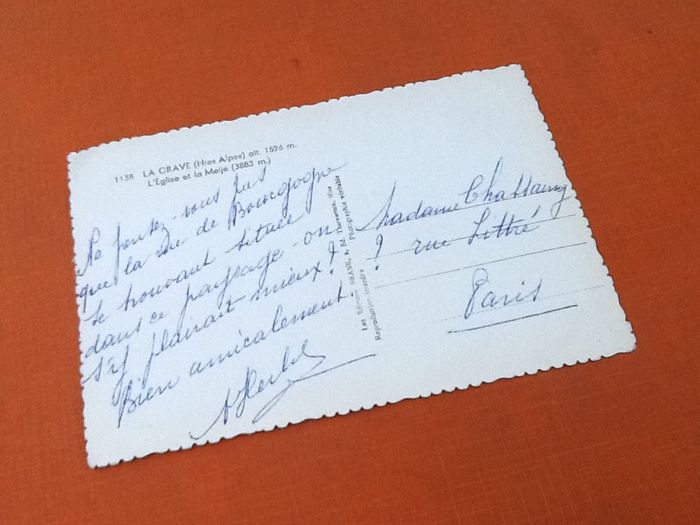 1138 LA GRAVE (Htes Alpes) alt. 1526 m.
L'Église et la Meije (3983 m.)
Ne pensez-vous pas
que la rue de Bourgogne
se trouvant située
dans ce paysage - on
s'y plairait mieux ?
Bien amicalement
Les Editions
Reproduction interdite
Photographie véritable
Madame Chassaing
9 rue Littré
Paris